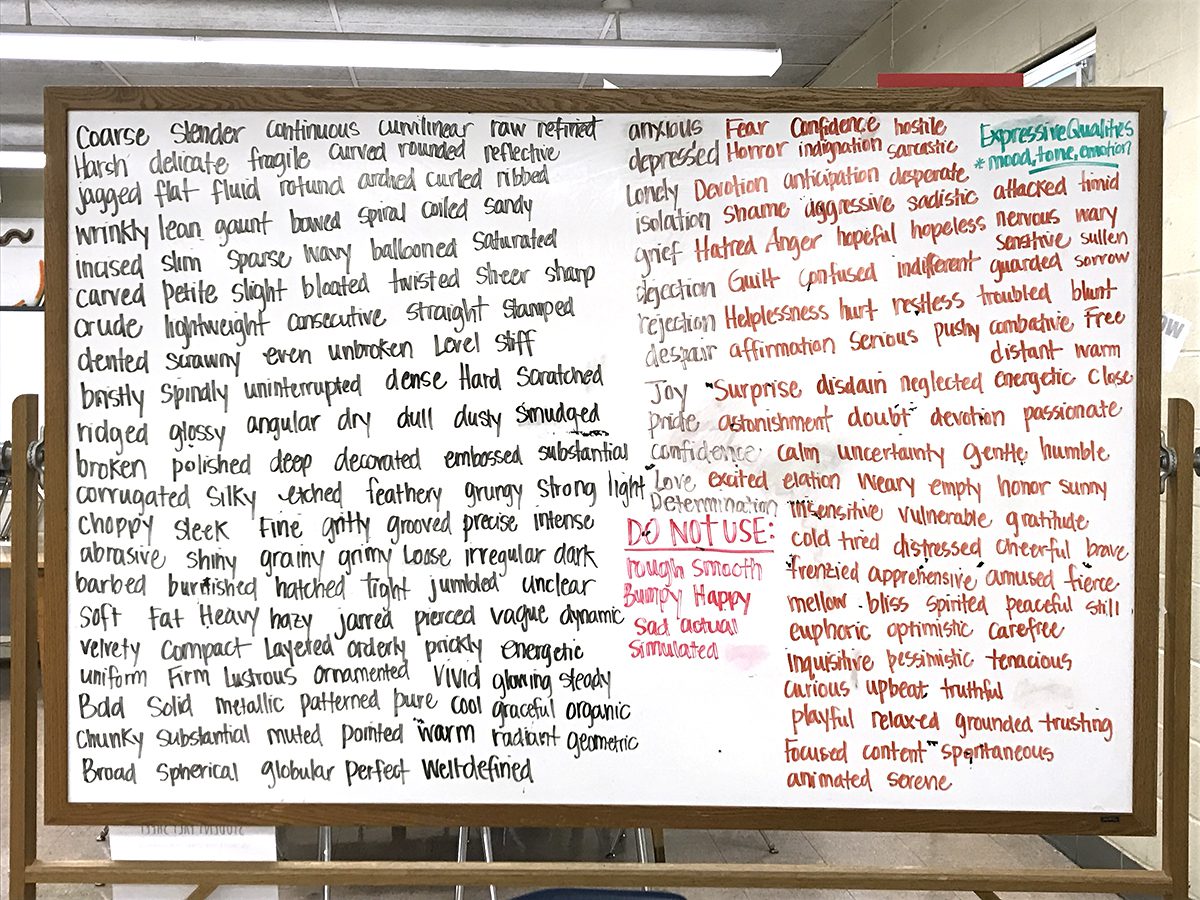 Coarse Slender continuous curvilinear raw refined
Harsh delicate fragile curved rounded reflective
jagged flat fluid rotund arched curled ribbed
wrinkly lean gaunt bowed spiral coiled sandy
incised slim sparse wavy ballooned saturated
carved petite slight bloated twisted sheer sharp
crude lightweight consecutive straight stamped
dented scrawny even unbroken Level stiff
bristly spindly uninterrupted dense Hard Scratched
ridged glossy angular dry dull dusty smudged
broken polished deep decorated embossed substantial
corrugated silky etched feathery grungy strong light
choppy sleek Fine gritty grooved precise intense
abrasive shiny grainy grimy Loose irregular dark
barbed burnished hatched tight jumbled unclear
soft Fat Heavy hazy jarred pierced vague dynamic
velvety Compact Layered orderly prickly energetic
uniform Firm Lustrous ornamented Vivid glowing steady
Bold Solid metallic patterned pure cool graceful organic
Chunky substantial muted pointed warm radiant geometric
Broad Spherical globular perfect Well-defined
anxious Fear Confidence hostile
depressed Horror indignation sarcastic
Lonely Devotion anticipation desperate
isolation Shame aggressive sadistic attacked timid
grief Hatred Anger hopeful hopeless nervous wary
sensitive sullen
dejection Guilt confused indifferent guarded sorrow
rejection Helplessness hurt restless troubled blunt
despair affirmation Serious pushy combative Free
distant warm
Joy Surprise disdain neglected energetic Close
pride astonishment doubt devotion passionate
confidence calm uncertainty Gentle humble
Love excited elation Weary empty honor sunny
Determination insensitive vulnerable gratitude
cold tired distressed cheerful brave
frenzied apprehensive amused fierce
mellow bliss spirited peaceful still
euphoric optimistic carefree
inquisitive pessimistic tenacious
curious upbeat truthful
playful relaxed grounded trusting
Focused content spontaneous
animated serene
Expressive Qualities
*mood, tone, emotion
DO NOT USE:
rough smooth
Bumpy Happy
Sad actual
Simulated